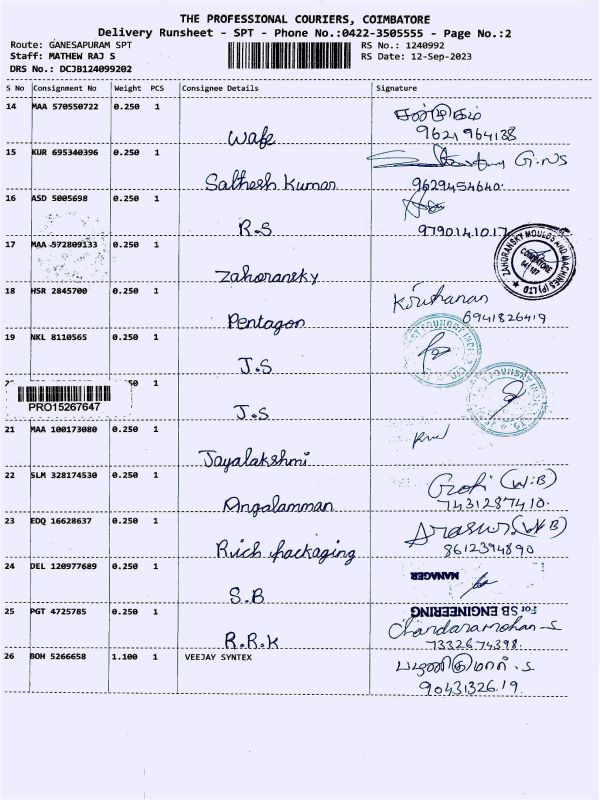 THE PROFESSIONAL COURIERS, COIMBATORE
Delivery Runsheet - SPT - Phone No.:0422-3505555 - Page No.:2
Route: GANESAPURAM SPT RS No.: 1240992
Staff: MATHEW RAJ S RS Date: 12-Sep-2023
DRS No.: DCJB124099202
S No Consignment No Weight PCS Consignee Details Signature
14 MAA 570550722 0.250 1 Wafe சண்முகம்
9621964138
15 KUR 695340396 0.250 1 Sathesh Kumar G.NS
9629454640.
16 ASD 5005698 0.250 1 R.S
9790141017
17 MAA 572809133 0.250 1 Zahoransky ZAHORANSKY MOULDS AND MACHINES (P) LTD COIMBATORE 641 107
18 HSR 2845700 0.250 1 Pentagon
6941826419
19 NKL 8110565 0.250 1 J.S
1 J.S
PRO15267647
21 MAA 100173080 0.250 1 Jayalakshmi
22 SLM 328174530 0.250 1 Angalamman Gopi (W.B)
7431287410.
23 EDQ 16628637 0.250 1 Rich packaging (W B)
8612394890
24 DEL 120977689 0.250 1 S.B MANAGER
For SB ENGINEERING
25 PGT 4725785 0.250 1 R.R.K Chandaramohan-S
7332674398.
26 BOH 5266658 1.100 1 VEEJAY SYNTEX பழனிகுமார். S
90431326.19